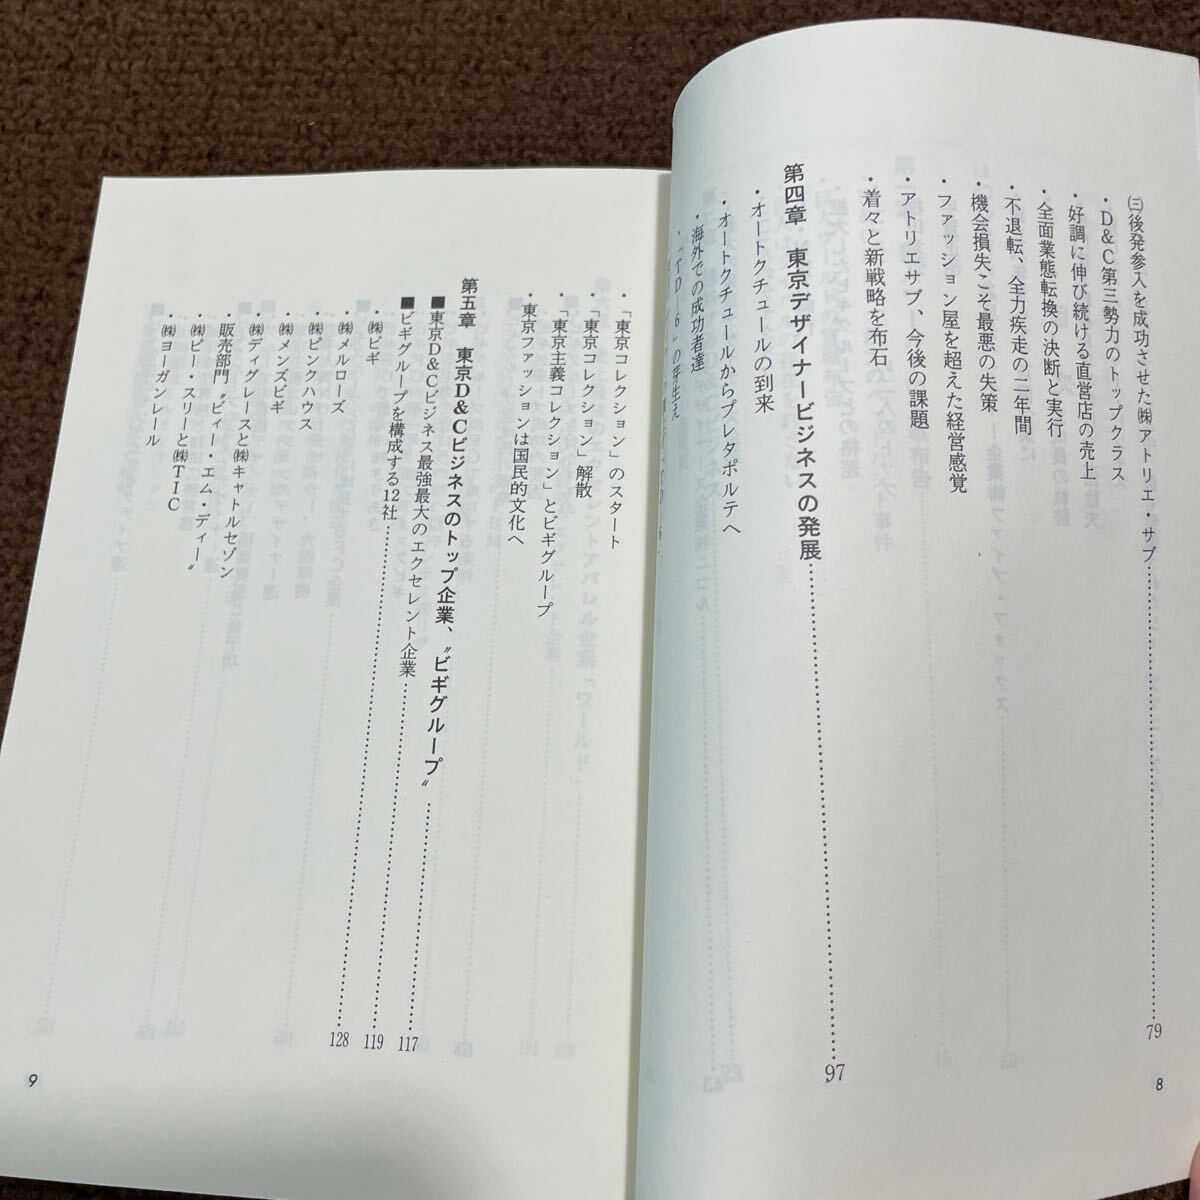 ㈢後発参入を成功させた㈱アトリエ・サブ……79
・D&C第三勢力のトップクラスへ
・好調に伸び続ける直営店の売上
・全面業態転換の決断と実行
・不退転、全力疾走の二年間
・機会損失こそ最悪の失策
・ファッション屋を超えた経営感覚
・アトリエサブ、今後の課題
・着々と新戦略を布石
第四章 東京デザイナービジネスの発展……97
・オートクチュールの到来
・オートクチュールからプレタポルテへ
・海外での成功者達
・「TD-6」の芽生え
8
・「東京コレクション」のスタート
・「東京コレクション」解散
・「東京主義コレクション」とビギグループ
・東京ファッションは国民的文化へ
第五章 東京D&Cビジネスのトップ企業、〝ビギグループ〟……117
■東京D&Cビジネス最強最大のエクセレント企業……117
■ビギグループを構成する12社……119
・㈱ビギ……128
・㈱メルローズ
・㈱ピンクハウス
・㈱メンズビギ
・㈱ディグレースと㈱キャトルセゾン
・販売部門〝ビィー・エム・ディー〟
・㈱ピー・スリーと㈱TIC
・㈱ヨーガンレール
9